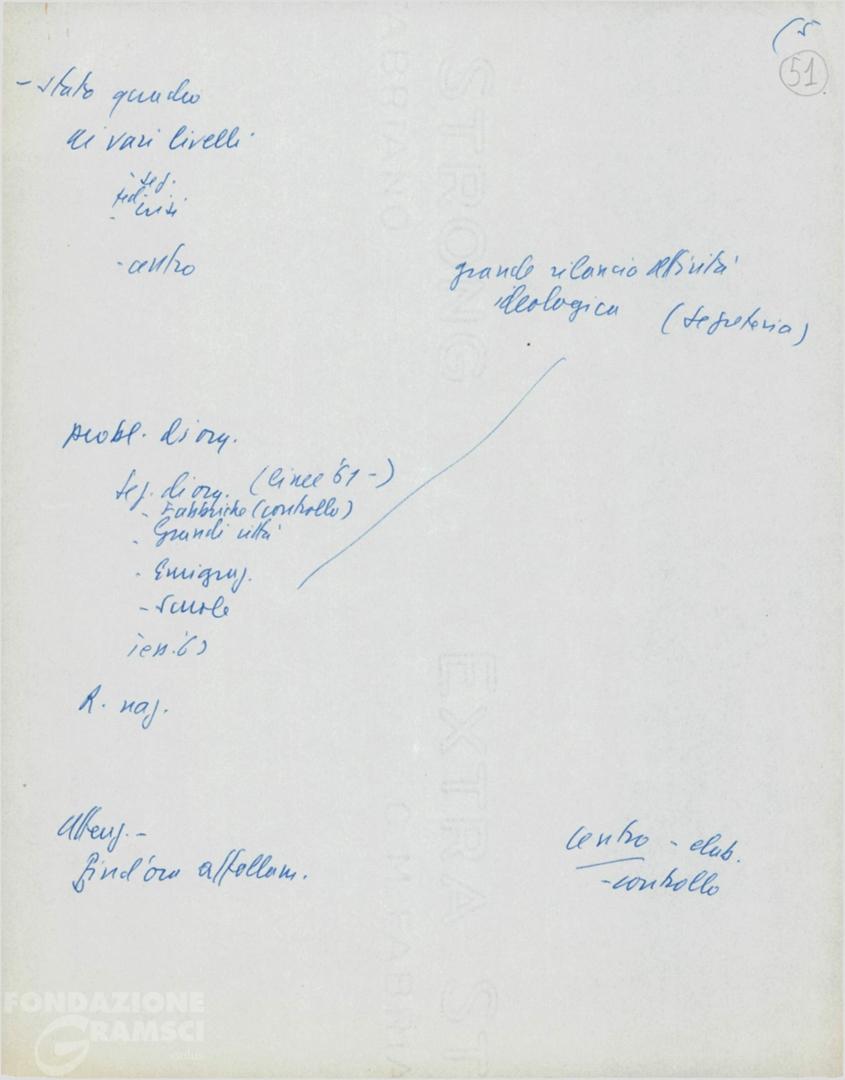 (5
51
- stato quadro
ai vari livelli
- seg.
- centro
grande rilancio attività
ideologica (segreteria)
probl. di org.
Seg. di org. (linee '61 -)
- Fabbriche (controllo)
- Grandi città
- Emigraz.
- Scuole
R. naz.
Attenz. -
Find'ora affollam.
centro - elab.
- controllo
STRONG
FABRIANO
EXTRA ST
C.M. FABRIA
FONDAZIONE
GRAMSCI
onlus